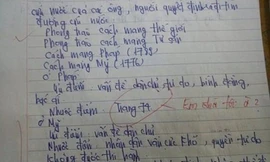 cứu nước của cụ ông, người quyết định ra đi tìm
đường cứu nước
Phong trào cách mạng thế giới
Phong trào cách mạng Tư sản
Cách mạng Pháp (1789)
Cách mạng Mỹ (1776)
Ở Pháp
Ưu điểm: vấn đề dân chủ tự do, bình đẳng,
bác ái
Nhược điểm Trang 74
Ở Mỹ
Ưu điểm: vấn đề dân chủ
Nhược điểm: nhân dân vẫn cực khổ, quyền tự do
không được thi hành